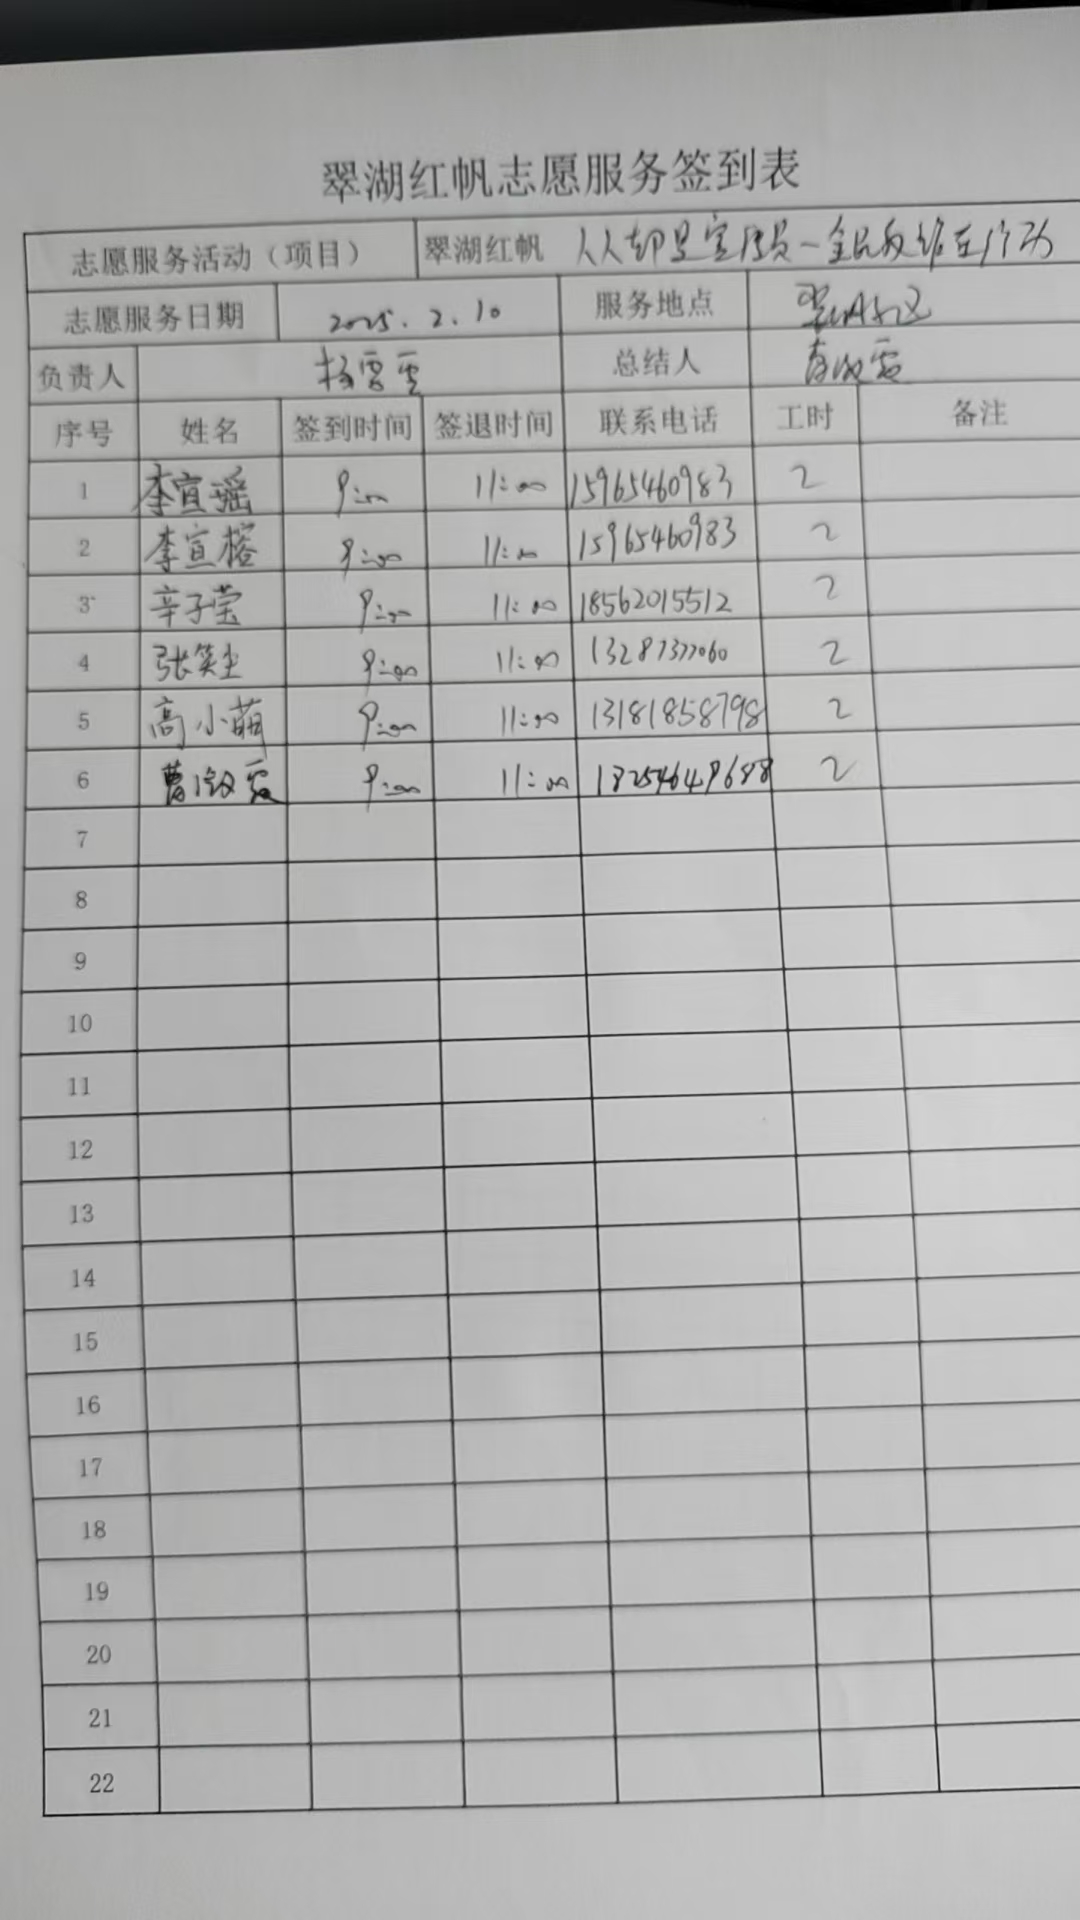 翠湖红帆志愿服务签到表
志愿服务活动（项目） 翠湖红帆 人人都是宣传员一全民反诈在行动
志愿服务日期 2025.2.10 服务地点 翠湖社区
负责人 杨雪 总结人
序号 姓名 签到时间 签退时间 联系电话 工时 备注
1 李宣瑶 9:00 11:00 15965460983 2
2 李宣榕 9:00 11:00 15965460983 2
3 辛子莹 9:00 11:00 18562015512 2
4 张笑尘 9:00 11:00 13287377060 2
5 高小萌 9:00 11:00 13181858798 2
6 曹微霞 9:00 11:00 18254649688 2
7
8
9
10
11
12
13
14
15
16
17
18
19
20
21
22